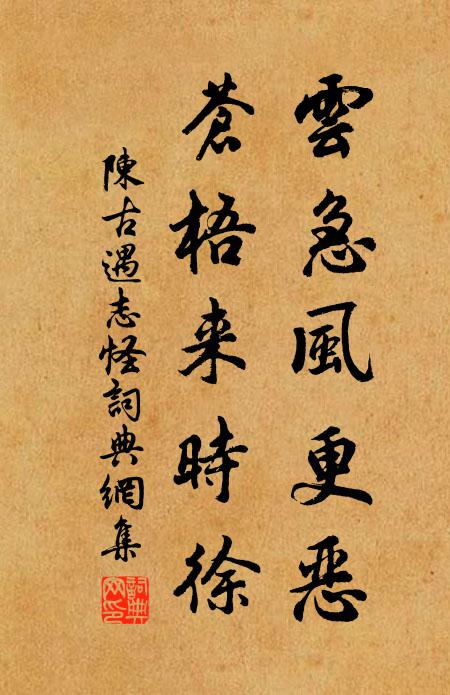 雲急風更惡
蒼梧来時徐
陳古遇志怪詞典網集
詞典网印